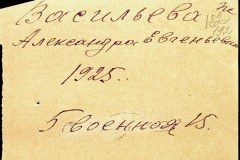 Васильева
Александра Евгеньевна
1925..
5 военная 15.